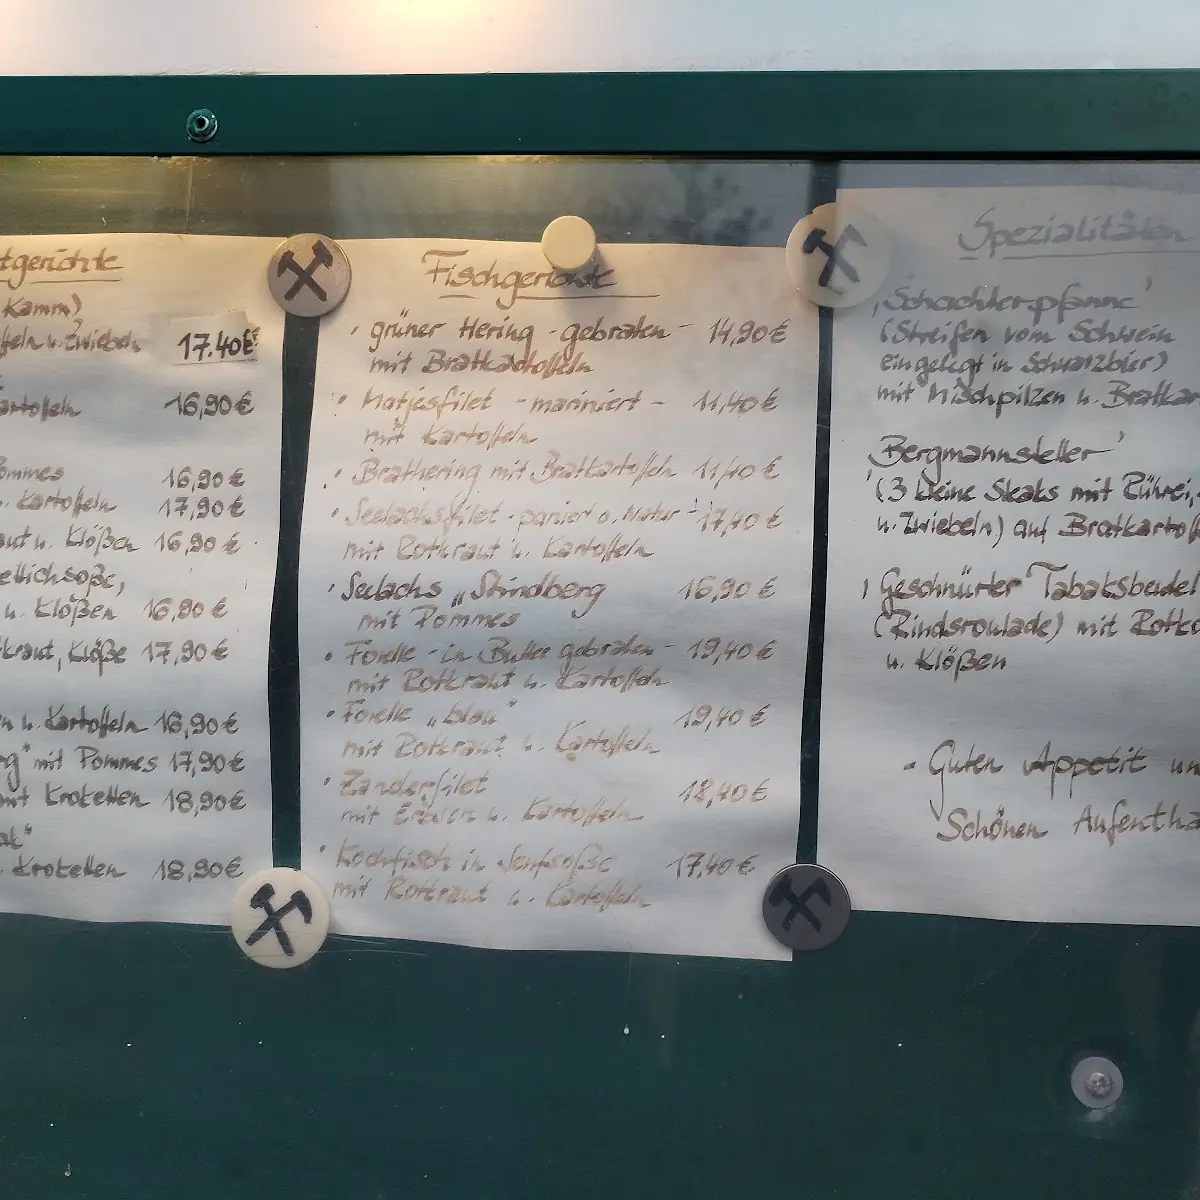 tgerichte
Kamm)
ffeln u. Zwiebeln 17.40€
artoffeln 16,90€
ommes 16,90€
. Kartoffeln 17,90€
aut u. Klößen 16,90€
ettichsoße,
u. Klößen 16,90€
tkraut, Klöße 17,90€
n u. Kartoffeln 16,90€
rg" mit Pommes 17,90€
mit Kroketten 18,90€
ak"
. Kroketten 18,90€
Fischgerichte
· grüner Hering - gebraten - 14,90€
mit Bratkartoffeln
· Matjesfilet - mariniert - 11,40€
mit Kartoffeln
· Brathering mit Bratkartoffeln 11,40€
· Seelachsfilet - paniert o. Natur - 17,40€
mit Rotkraut u. Kartoffeln
· Seelachs „Strindberg 16,90€
mit Pommes
· Forelle - in Butter gebraten - 19,40€
mit Rotkraut u. Kartoffeln
· Forelle „blau" 19,40€
mit Rotkraut u. Kartoffeln
· Zanderfilet 18,40€
mit Erbsen u. Kartoffeln
· Kochfisch in Senfsoße 17,40€
mit Rotkraut u. Kartoffeln
Spezialitäten
'Schachterpfanne'
(Streifen vom Schwein
eingelegt in Schwarzbier)
mit Mischpilzen u. Bratkar
Bergmannsteller'
(3 kleine Steaks mit Rührei,
u. Zwiebeln) auf Bratkartof
' Geschnürter Tabaksbeutel
(Rindsroulade) mit Rotko
u. Klößen
- Guten Appetit un
Schönen Aufentha